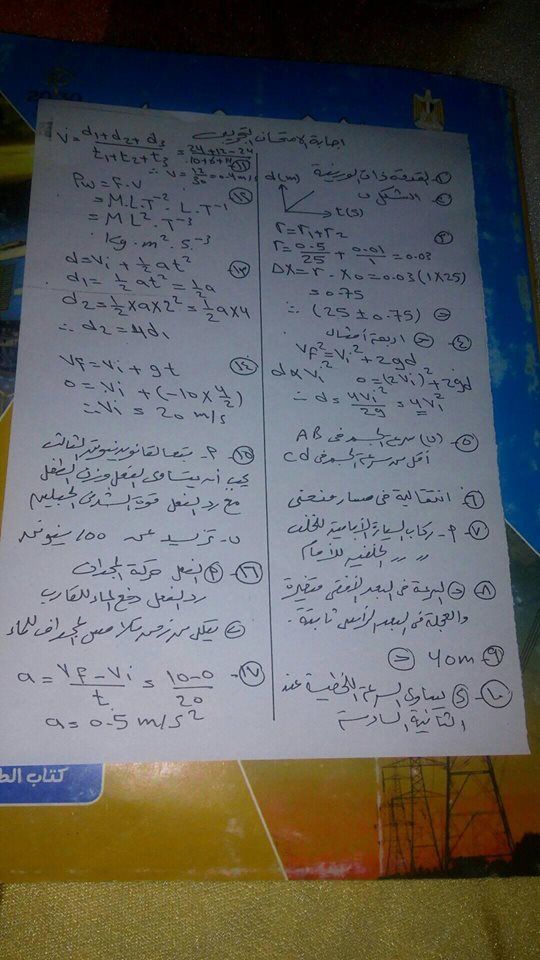 اجابة الامتحان التجريبى
① القدمة ذات الورنية
② الشكل ب
d(m)
t(s)
③
r = r1 + r2
r = 0.5/25 + 0.01/1 = 0.03
ΔX = r · X0 = 0.03 (1 X 25)
= 0.75
∴ (25 ± 0.75)
④ اربعة أمثال
Vf² = Vi² + 2gd
d α Vi² 0 = (2Vi)² + 2gd
∴ d = 4Vi²/2g = 4Vi²
⑤ (ب) سرعة الجسم فى AB
أقل من سرعة الجسم فى cd
⑥ انتقالية فى مسار منحنى
⑦ P- ركاب السيارة الأمامية للخلف
// // الخلفية للأمام
⑧ السرعة فى البعد الأفقى متغيرة
والعجلة فى البعد الرأسى ثابتة.
⑨ 40m
⑩ يساوى السرعة اللحظية عند
الثانية السادسة
⑪
V̄ = d1 + d2 + d3 / t1 + t2 + t3 = 24 + 12 - 24
∴ V = 12/30 = 0.4 m/s
⑫
Pw = F . V
= M.L.T⁻² . L.T⁻¹
= M L² . T⁻³
Kg . m² . s⁻³
⑬
d = Vi + ½ at²
d1 = ½ at² = ½ a
d2 = ½ x a x 2² = ½ a x 4
∴ d2 = 4d1
⑭
Vf = Vi + gt
0 = Vi + (-10 x 4/2)
∴ Vi = 20 m/s
⑮ P- تبعا لقانون نيوتن الثالث
يجب أن يتساوى الفعل وزن الطفل
مع رد الفعل قوة الشد فى الحبلين
ب- تزيد عن 100 نيوتن
⑯ P الفعل حركة المجداف
رد الفعل دفع الماء للقارب
⑰
a = Vf - Vi / t = 10-0 / 20
a = 0.5 m/s²
كتاب الط